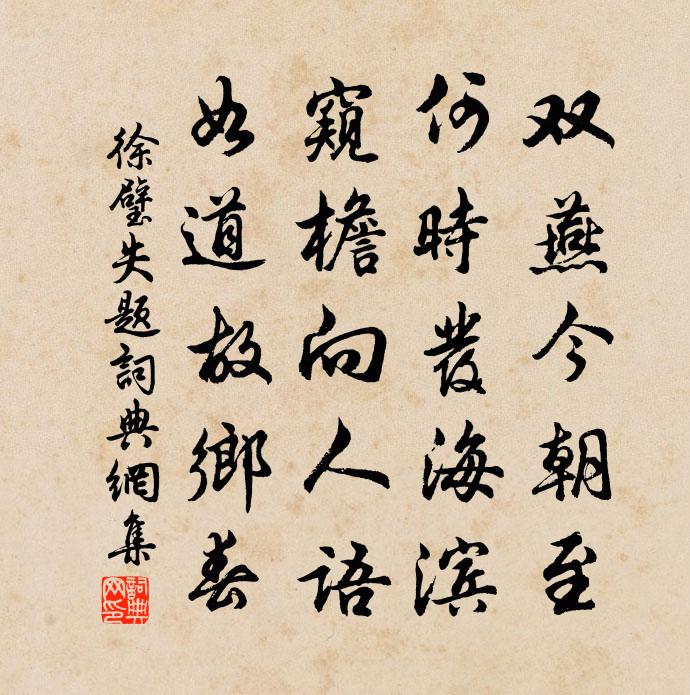 双燕今朝至
何時發海滨
窺檐向人語
如道故鄉春
徐璧失题詞典網集
詞典网印